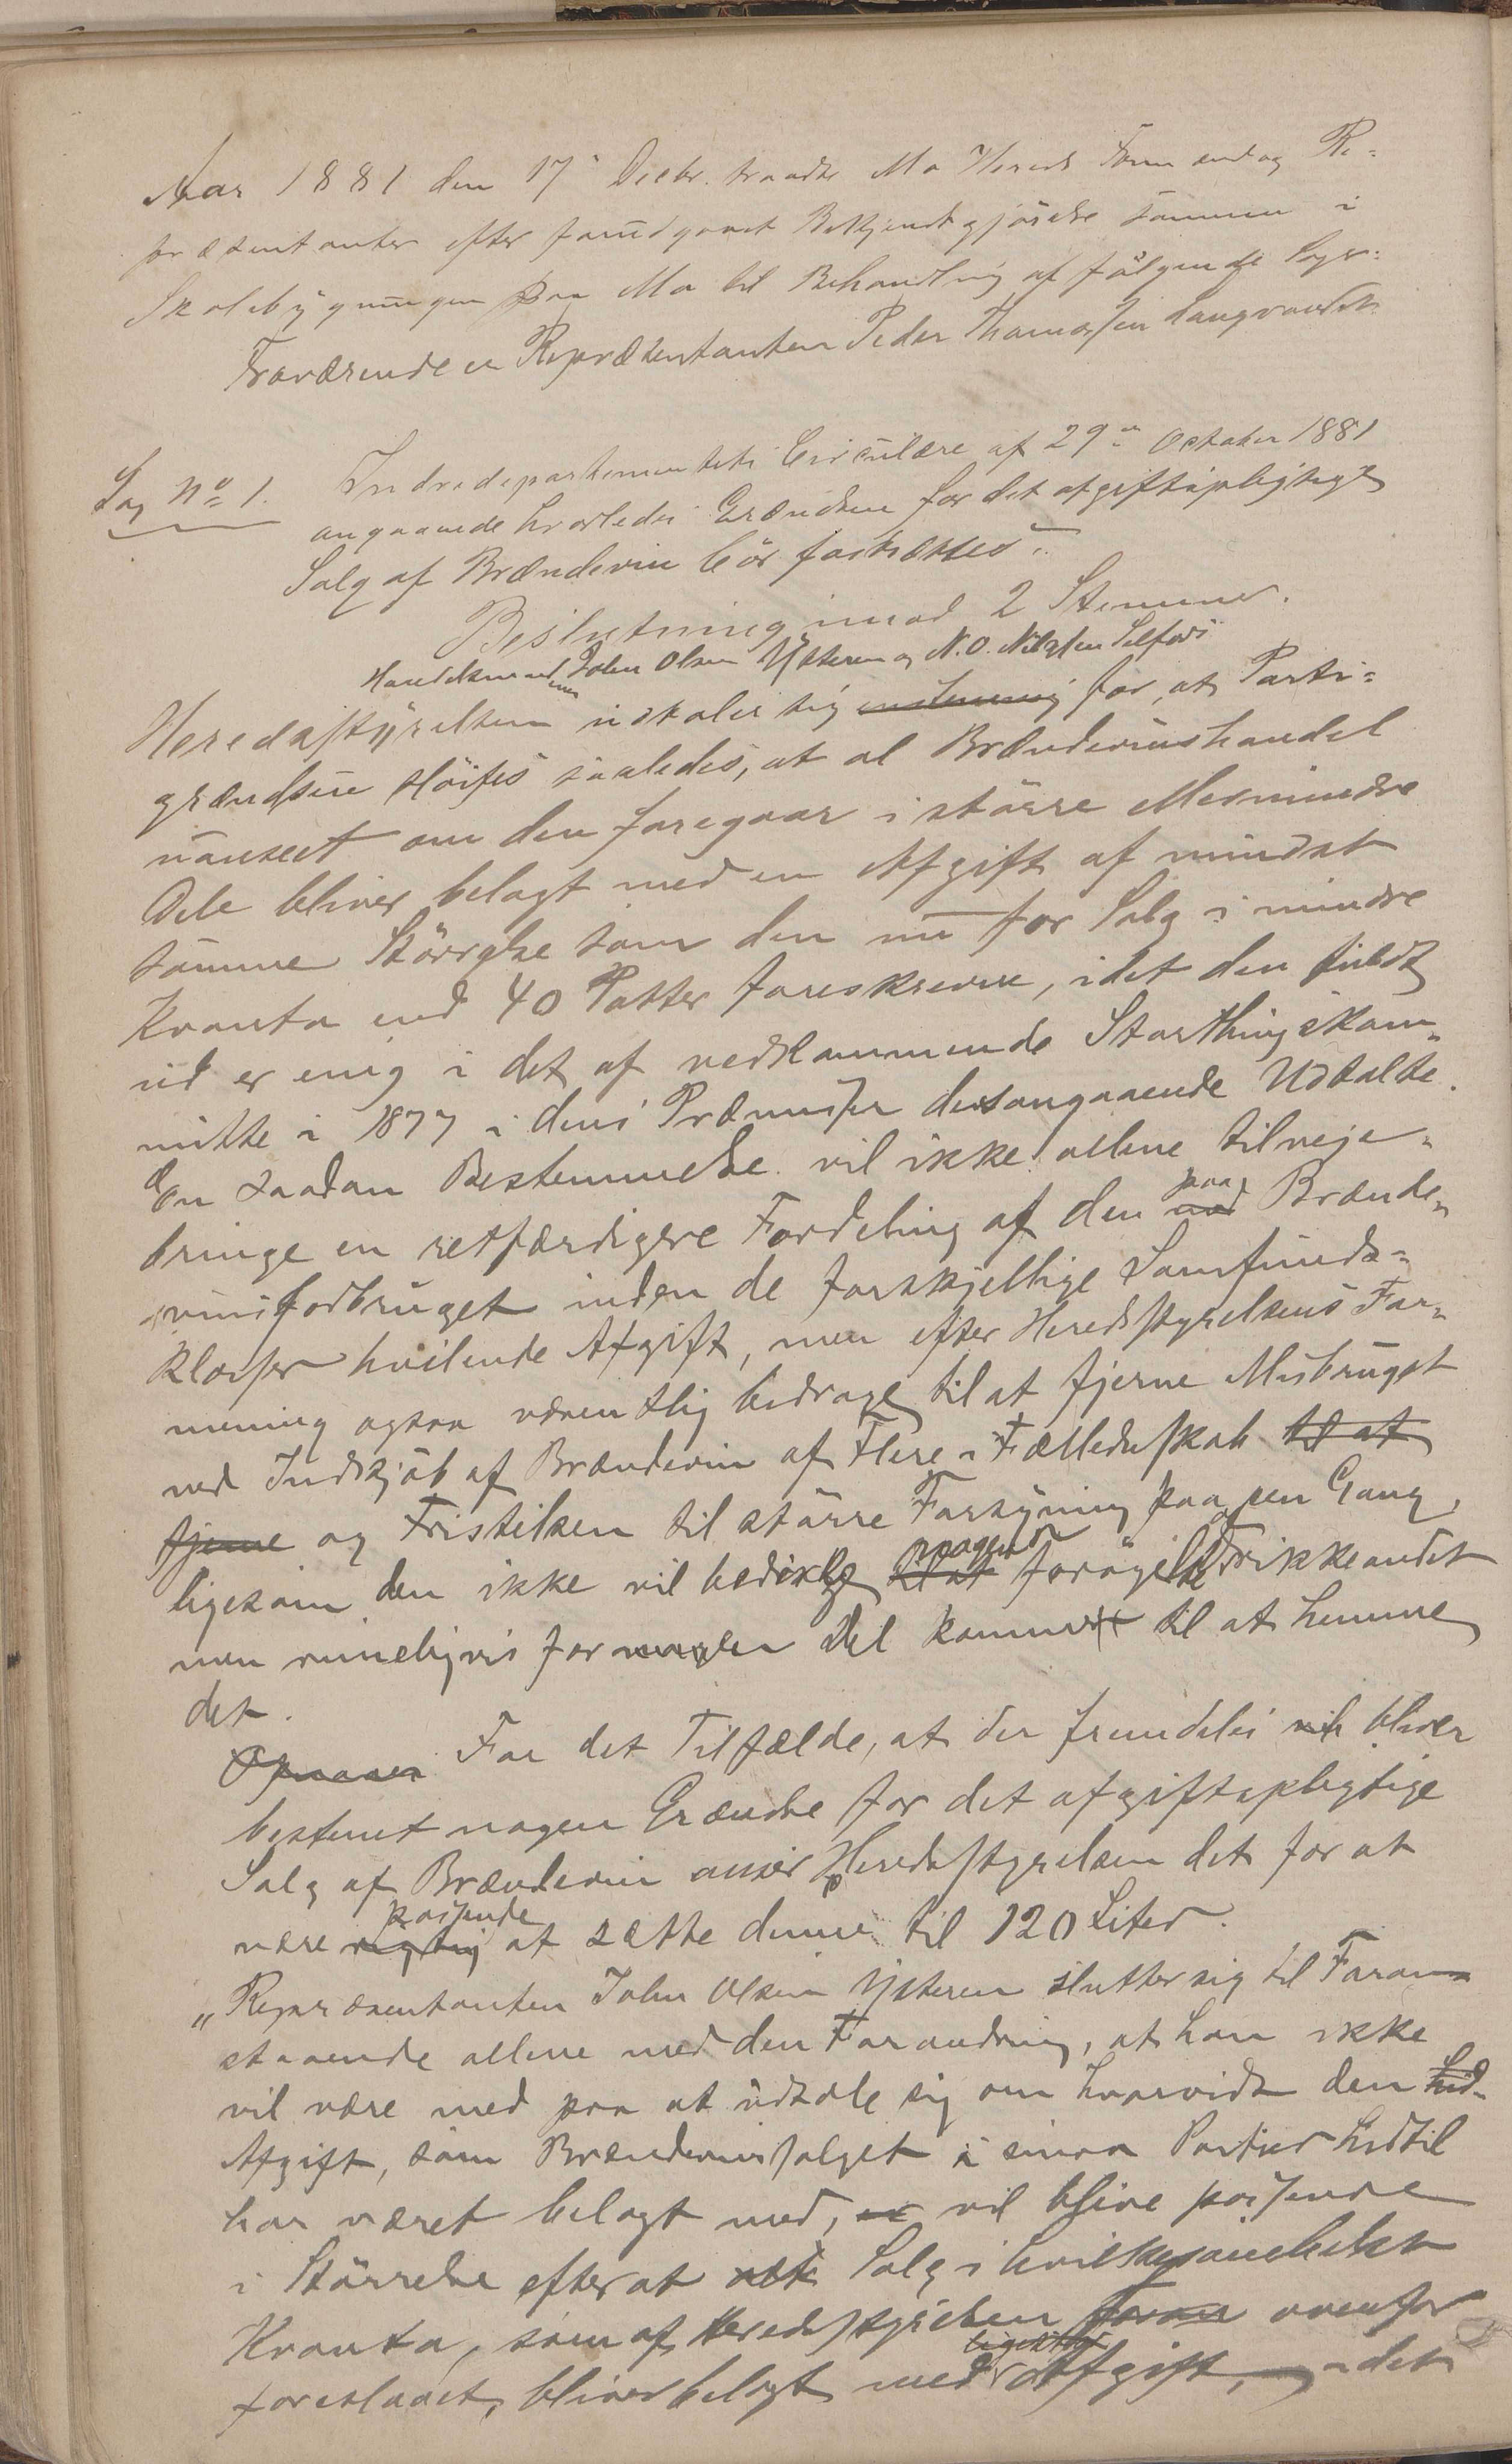 Aar 1881 den 17 Decbr. traadte Mo Hereds Formænd og Re=
præsentanter efter forudgaaet Bekjendtgjørelse sammen i
Skolebygningen paa Mo til Behandling af følgende Sager:
Fraværende er Repræsentanten Peder Thomassen Langvandet
Sag No 1. Indredepartementets Circulære af 29de October 1881
angaaende hvorledes Grændsen for det afgiftspligtige
Salg af Brændeviin bør fastsættes.
Beslutning imod 2 Stemmer.
Handelsmand John Olsen Ytteren og N. O. Nilssen Selfors
Heredsstyrelsen udtaler sig enstemmig for, at Parti=
grændsene sløifes saaledes, at al Brændeviinshandel
uanseet om den foregaar i større eller mindre
Dele bliver belagt med en Afgift af mindst
samme Størrelse som den nu for Salg i mindre
Kvanta end 40 Potter foreskrevne, idet den fuldt
ud er enig i det af vedkommende Storthingskom=
mitte i 1877 i dens Præmisser desangaaende Udtalte.
En saadan Bestemmelse vil ikke allene tilveje=
bringe en retfærdigere Fordeling af den paa Brænde=
viinsforbruget inden de forskjellige Samfunds=
klasser hvilende Afgift, men efter Heredsstyrelsens For=
mening ogsaa væsentlig bidrage til at fjerne Misbruget
ved Indkjøb af Brændeviin af Flere i Fælledsskab til at
fjerne og Fristelsen til større Forsyning paa en Gang,
ligesom den ikke vil til at forøge Drikkeondet
men rimeligvis for en Del komme til at hemme
det.
For det Tilfælde, at der fremdeles vil bliver
bestemt nogen Grændse for det afgiftspligtige
Salg af Brændeviin anser Heredsstyrelsen det for at
være rigtig passende at sætte denne til 120 Liter.
"Repræsentanten John Olsen Ytteren slutter sig til Foran=
staaende allene med den Forandring, at han ikke
vil være med paa at udtale sig om hvorvidt den hid-
Afgift, som Brændeviinssalget i smaa Partier hidtil
har været belagt med, er vil blive passende
i Størrelse efter at alt Salg i hvilketsomhelst
Kvanta, som af Heredsstyrelsen foran ovenfor
foreslaaet, bliver belagt med ligelig Afgift, idet